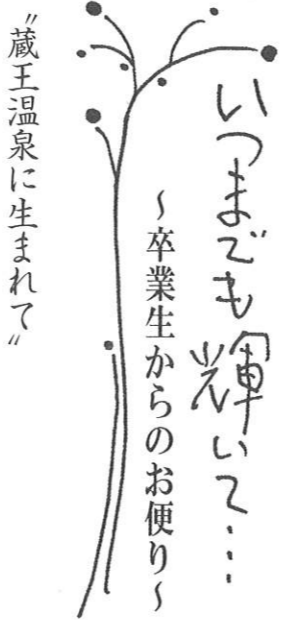 いつまでも輝いて…
～卒業生からのお便り～
〝蔵王温泉に生まれて〟